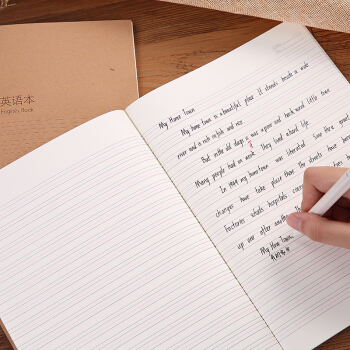 英语本
English Book
My Home Town
My home town is a beautiful place. It stands beside a wide
river and is rich in fish and rice.
But in the old days it was a poor and backward little town.
Many people had no work. They lived a hard life.
In 1949 my hometown was liberated. Since then great
changes have taken place there. The streets have been
Factories schools hospitals
up one after another.
My Home Town.